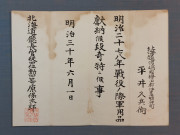 平井久兵衛
明治二十七八年戰役ノ際軍用品
獻納候段奇特ニ候事
明治三十年六月一日
北海道廳長官正五位勳三等原保太郎